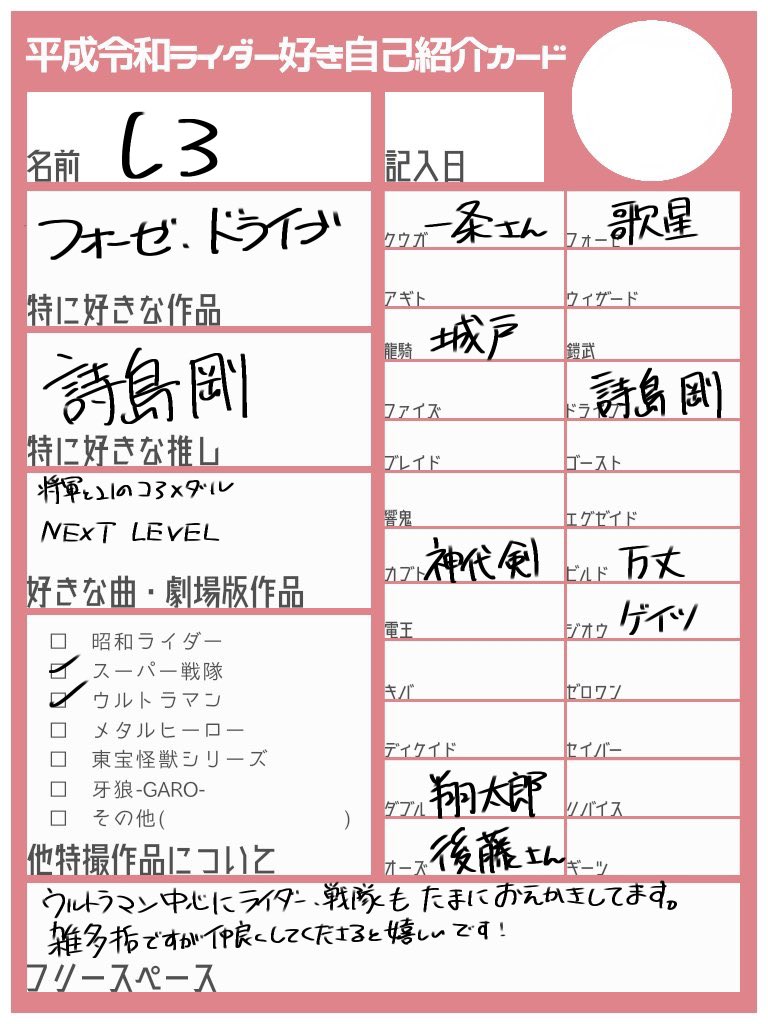 平成令和ライダー好き自己紹介カード
名前 しろ
記入日
フォーゼ、ドライブ
特に好きな作品
詩島剛
特に好きな推し
将軍と21のコアメダル
NEXT LEVEL
好きな曲・劇場版作品
昭和ライダー
スーパー戦隊
ウルトラマン
メタルヒーロー
東宝怪獣シリーズ
牙狼-GARO-
その他( )
他特撮作品について
クウガ 一条さん
アギト
龍騎 城戸
ファイズ
ブレイド
響鬼
カブト 神代剣
電王
キバ
ディケイド
ダブル 翔太郎
オーズ 後藤さん
フォーゼ 歌星
ウィザード
鎧武
ドライブ 詩島剛
ゴースト
エグゼイド
ビルド 万丈
ジオウ ゲイツ
ゼロワン
セイバー
リバイス
ギーツ
ウルトラマン中心にライダー、戦隊も たまにおえかきしてます。
雑多垢ですが仲良くしてくださると嬉しいです!
フリースペース